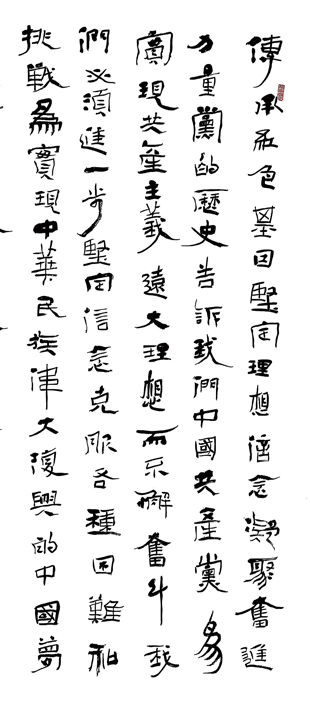 傳承紅色基因堅定理想信念凝聚奮進
力量黨的歷史告訴我們中國共產黨為
實現共產主義遠大理想而不懈奮鬥我
們必須進一步堅定信念克服各種困難和
挑戰為實現中華民族偉大復興的中國夢